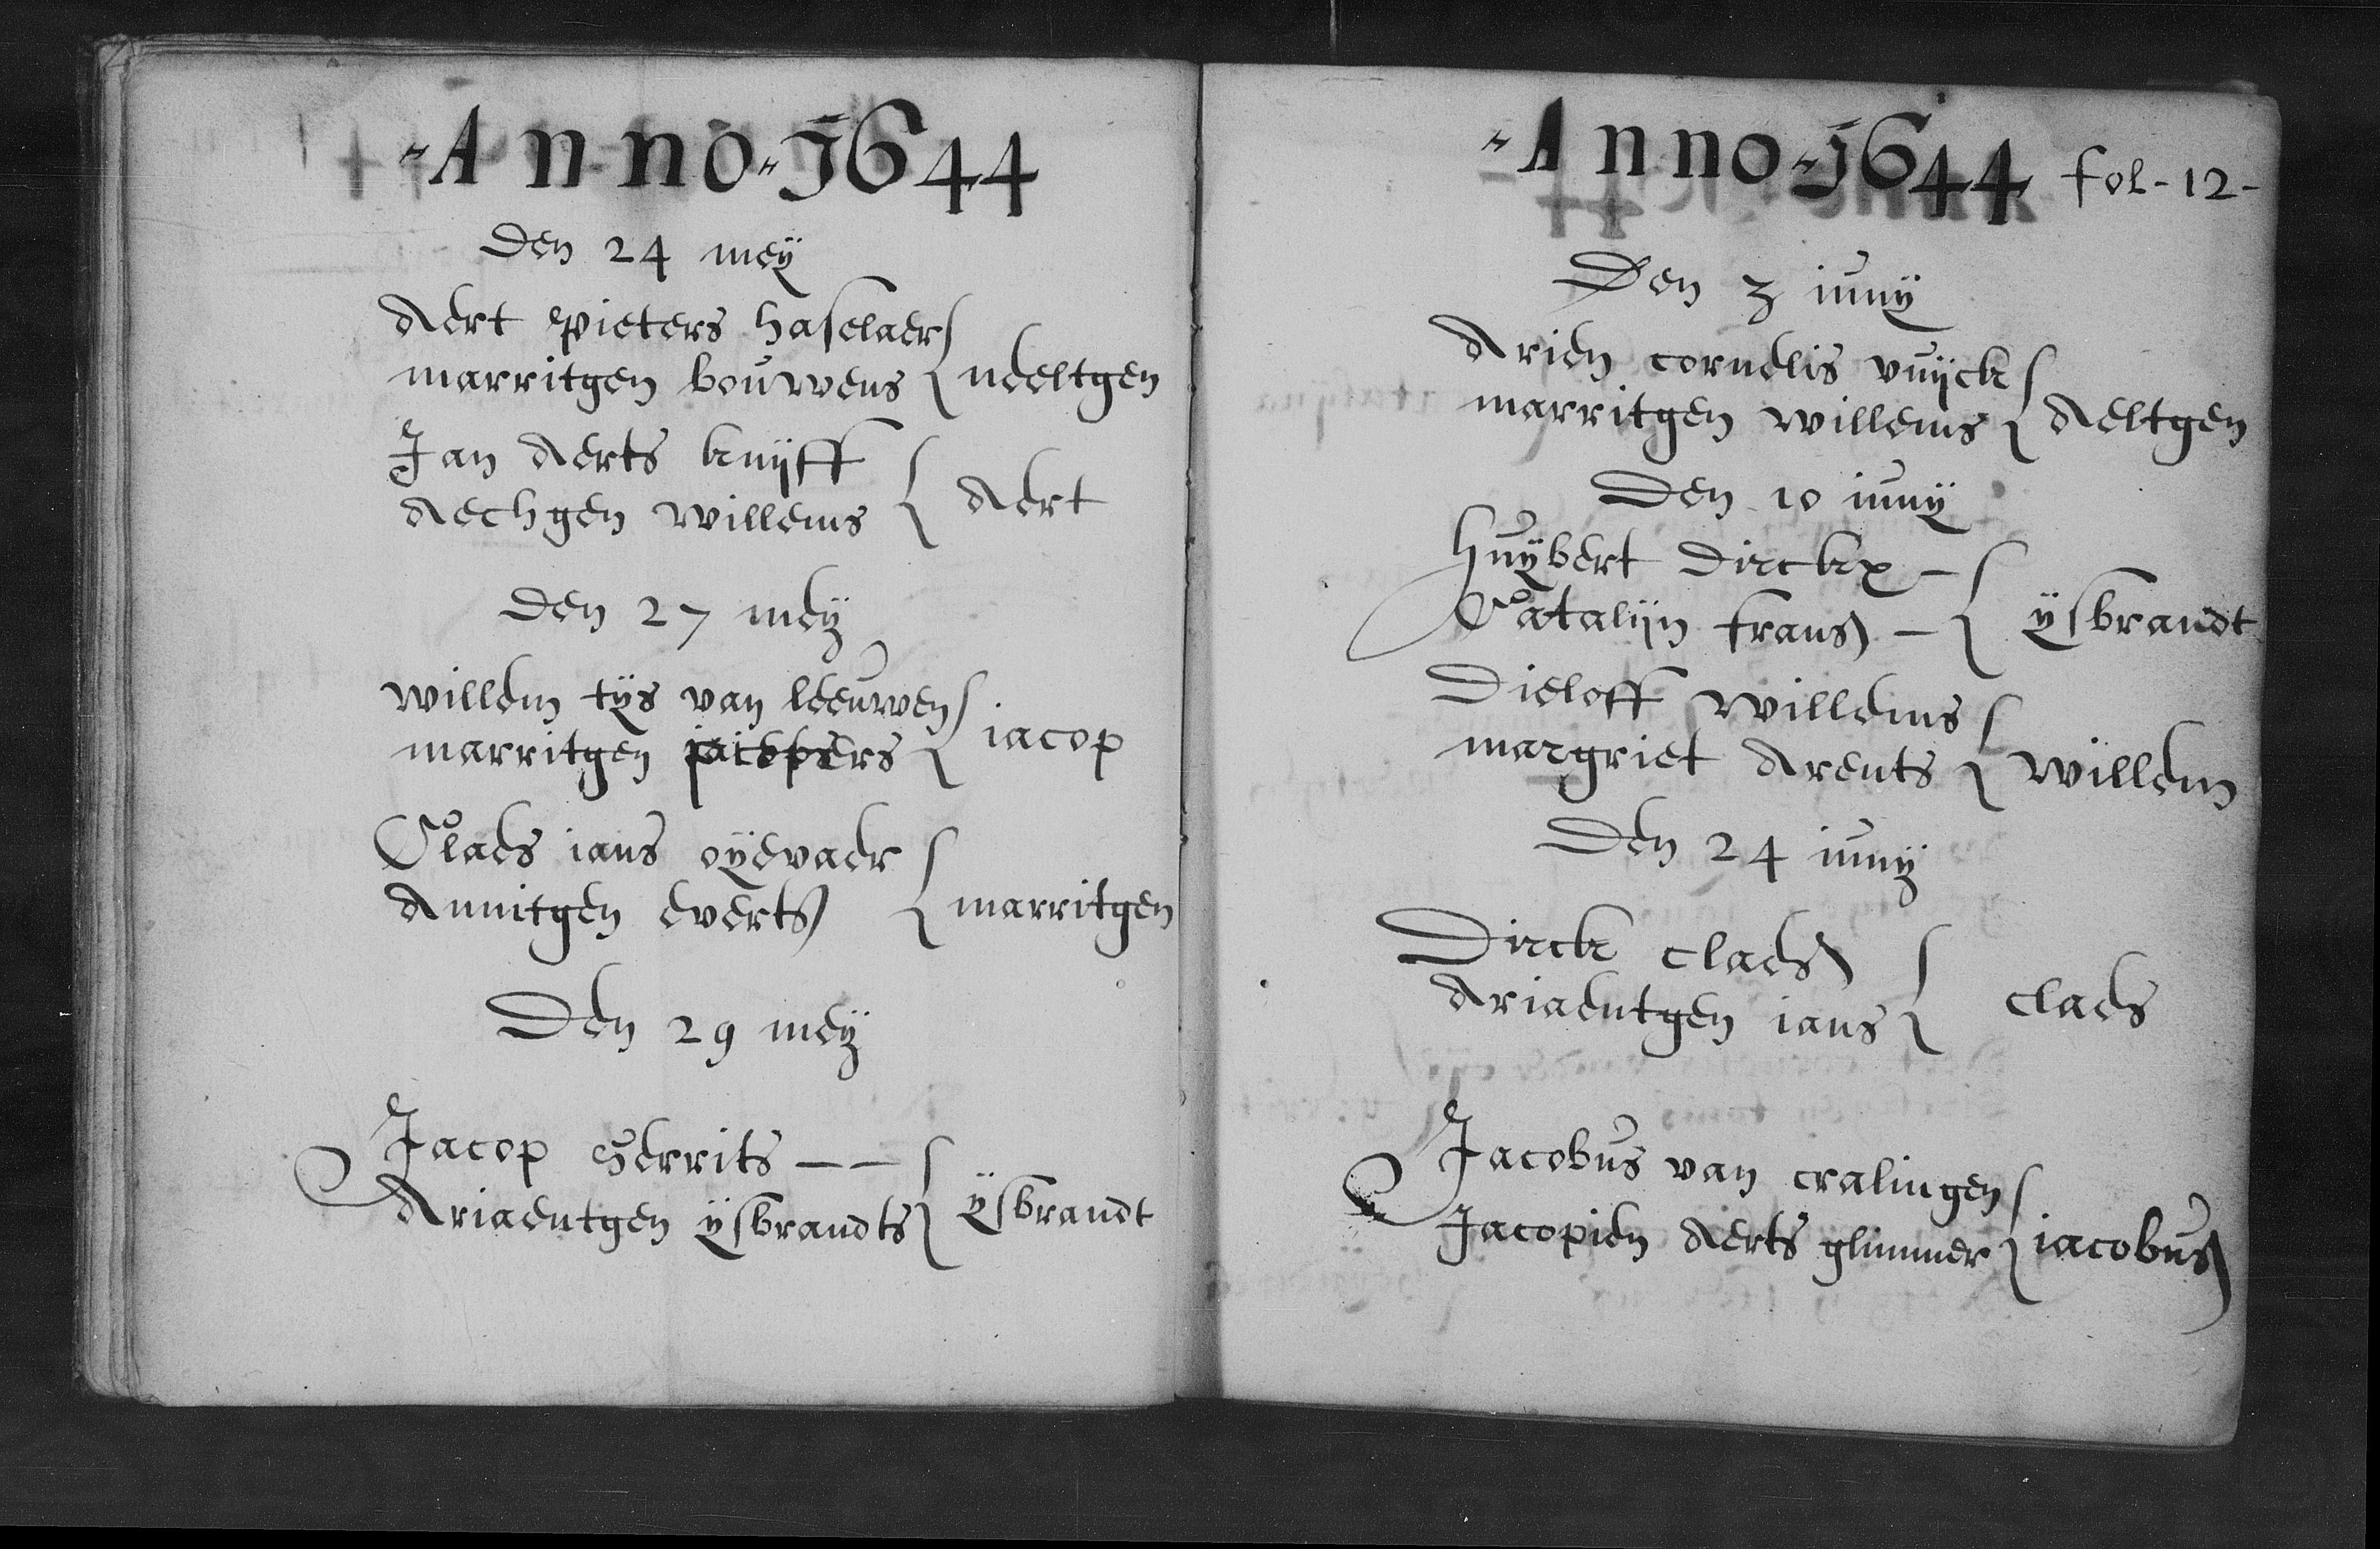 Anno 1644
Den 24 meÿ
Aert pieters haselaer
marritgen bouwens { neeltgen
Jan Aerts knijff
Aechgen willems { Aert
Den 27 meÿ
willem tÿs van leeuwen
marritgen { iacop
Claes ians oÿevaer
Annitgen everts { marritgen
Den 29 meÿ
Jacop Gerrits --
Ariaentgen ÿsbrandts { ÿsbrandt
Anno 1644 fol-12-
Den 3 iunÿ
Arien cornelis vuijck
marritgen willems { Aeltgen
Den 10 iunÿ
huÿbert Dirckx -
Catalijn frans - { ÿsbrandt
Dieloff willems
margriet Arents { willem
Den 24 iunÿ
Dirck claes
Ariaentgen ians { claes
Jacobus van cralingen
Jacopien Aerts glimmer { iacobus